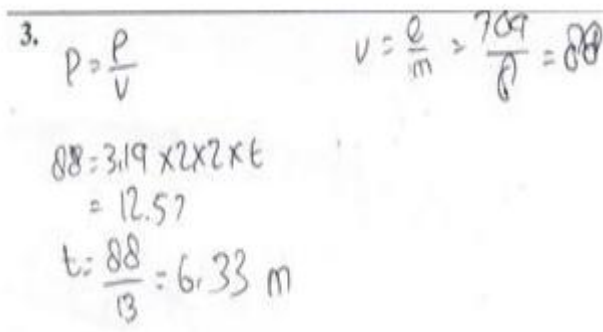 3.
P = P/V
V = e/m = 709/8 = 88
88 = 3.19 x 2 x 2 x t
= 12.57
t = 88/13 = 6.33 m